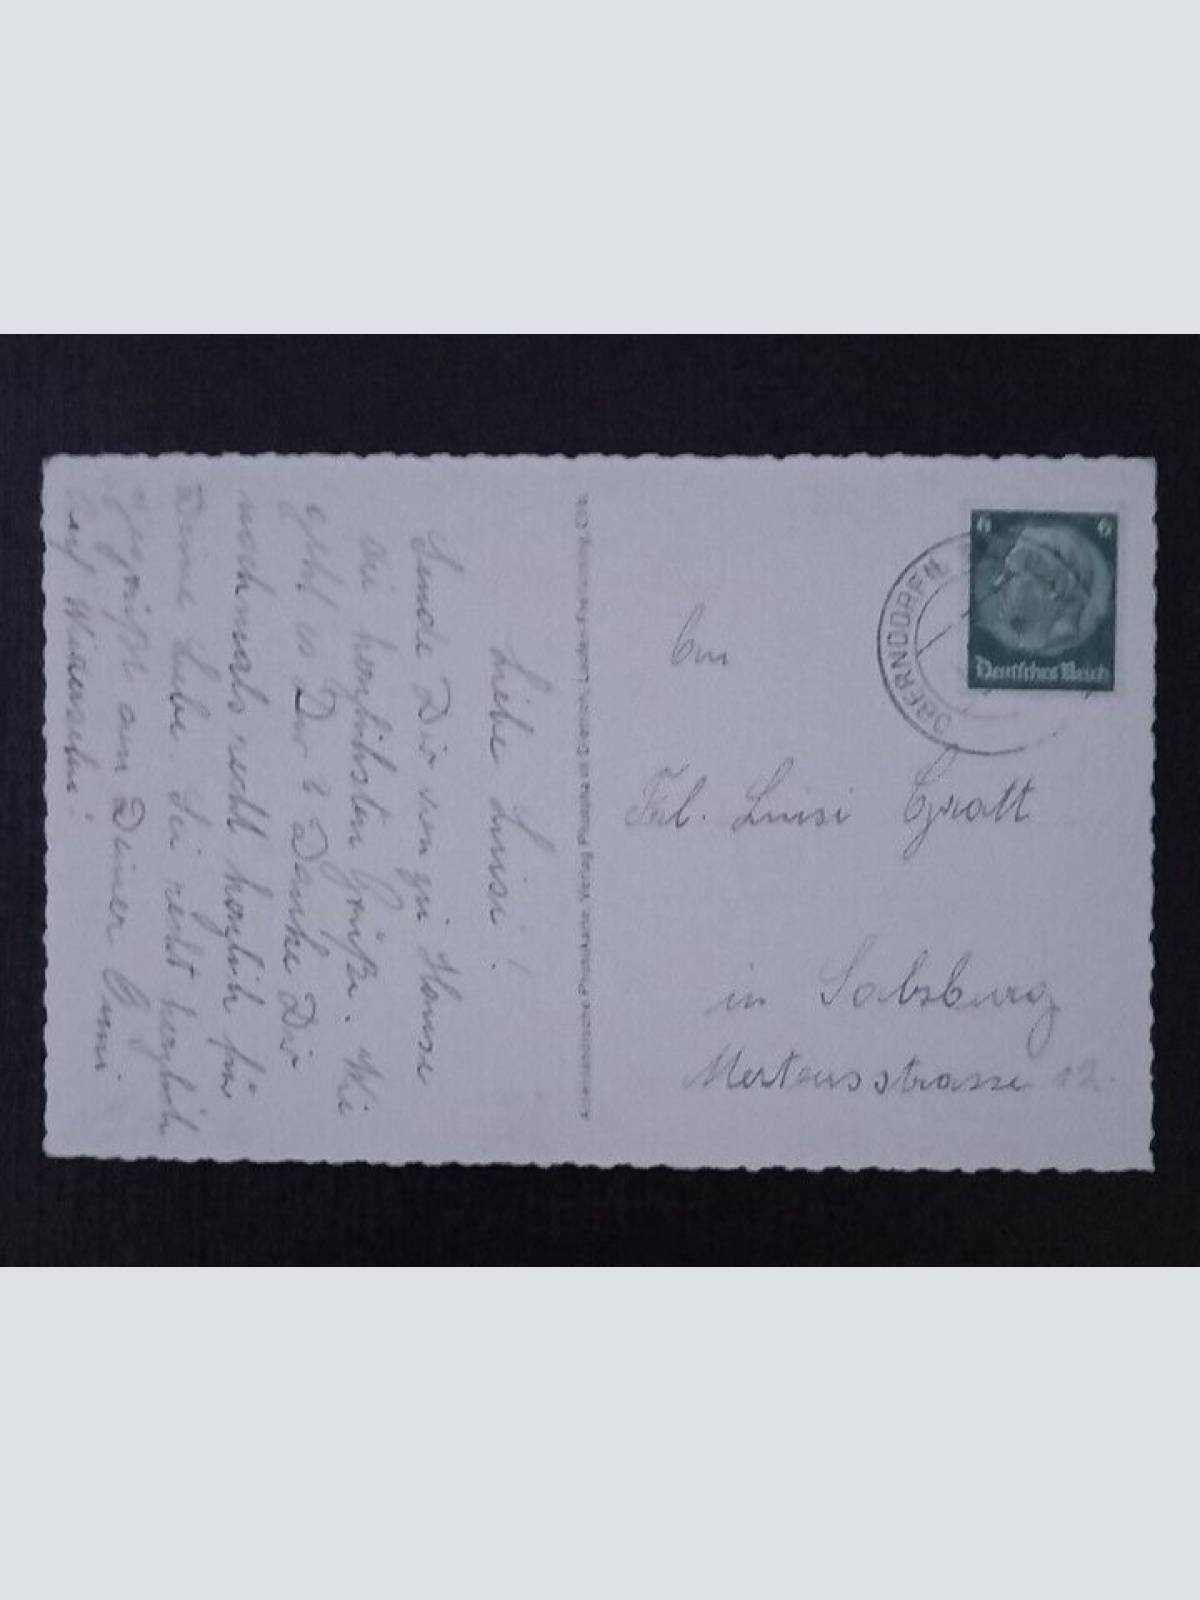 Liebe Luisi!
Sende Dir von zu Hause
die herzlichsten Grüße. Wie
geht es Dir? Danke Dir
nochmals recht herzlich für
Deine Liebe. Sei recht herzlich
gegrüßt von Deiner Anni.
Auf Wiedersehn!
An
Frl. Luisi Gratt
in Salzburg
Mertensstrasse 12.
OBERNDORF
6 6
Deutsches Reich